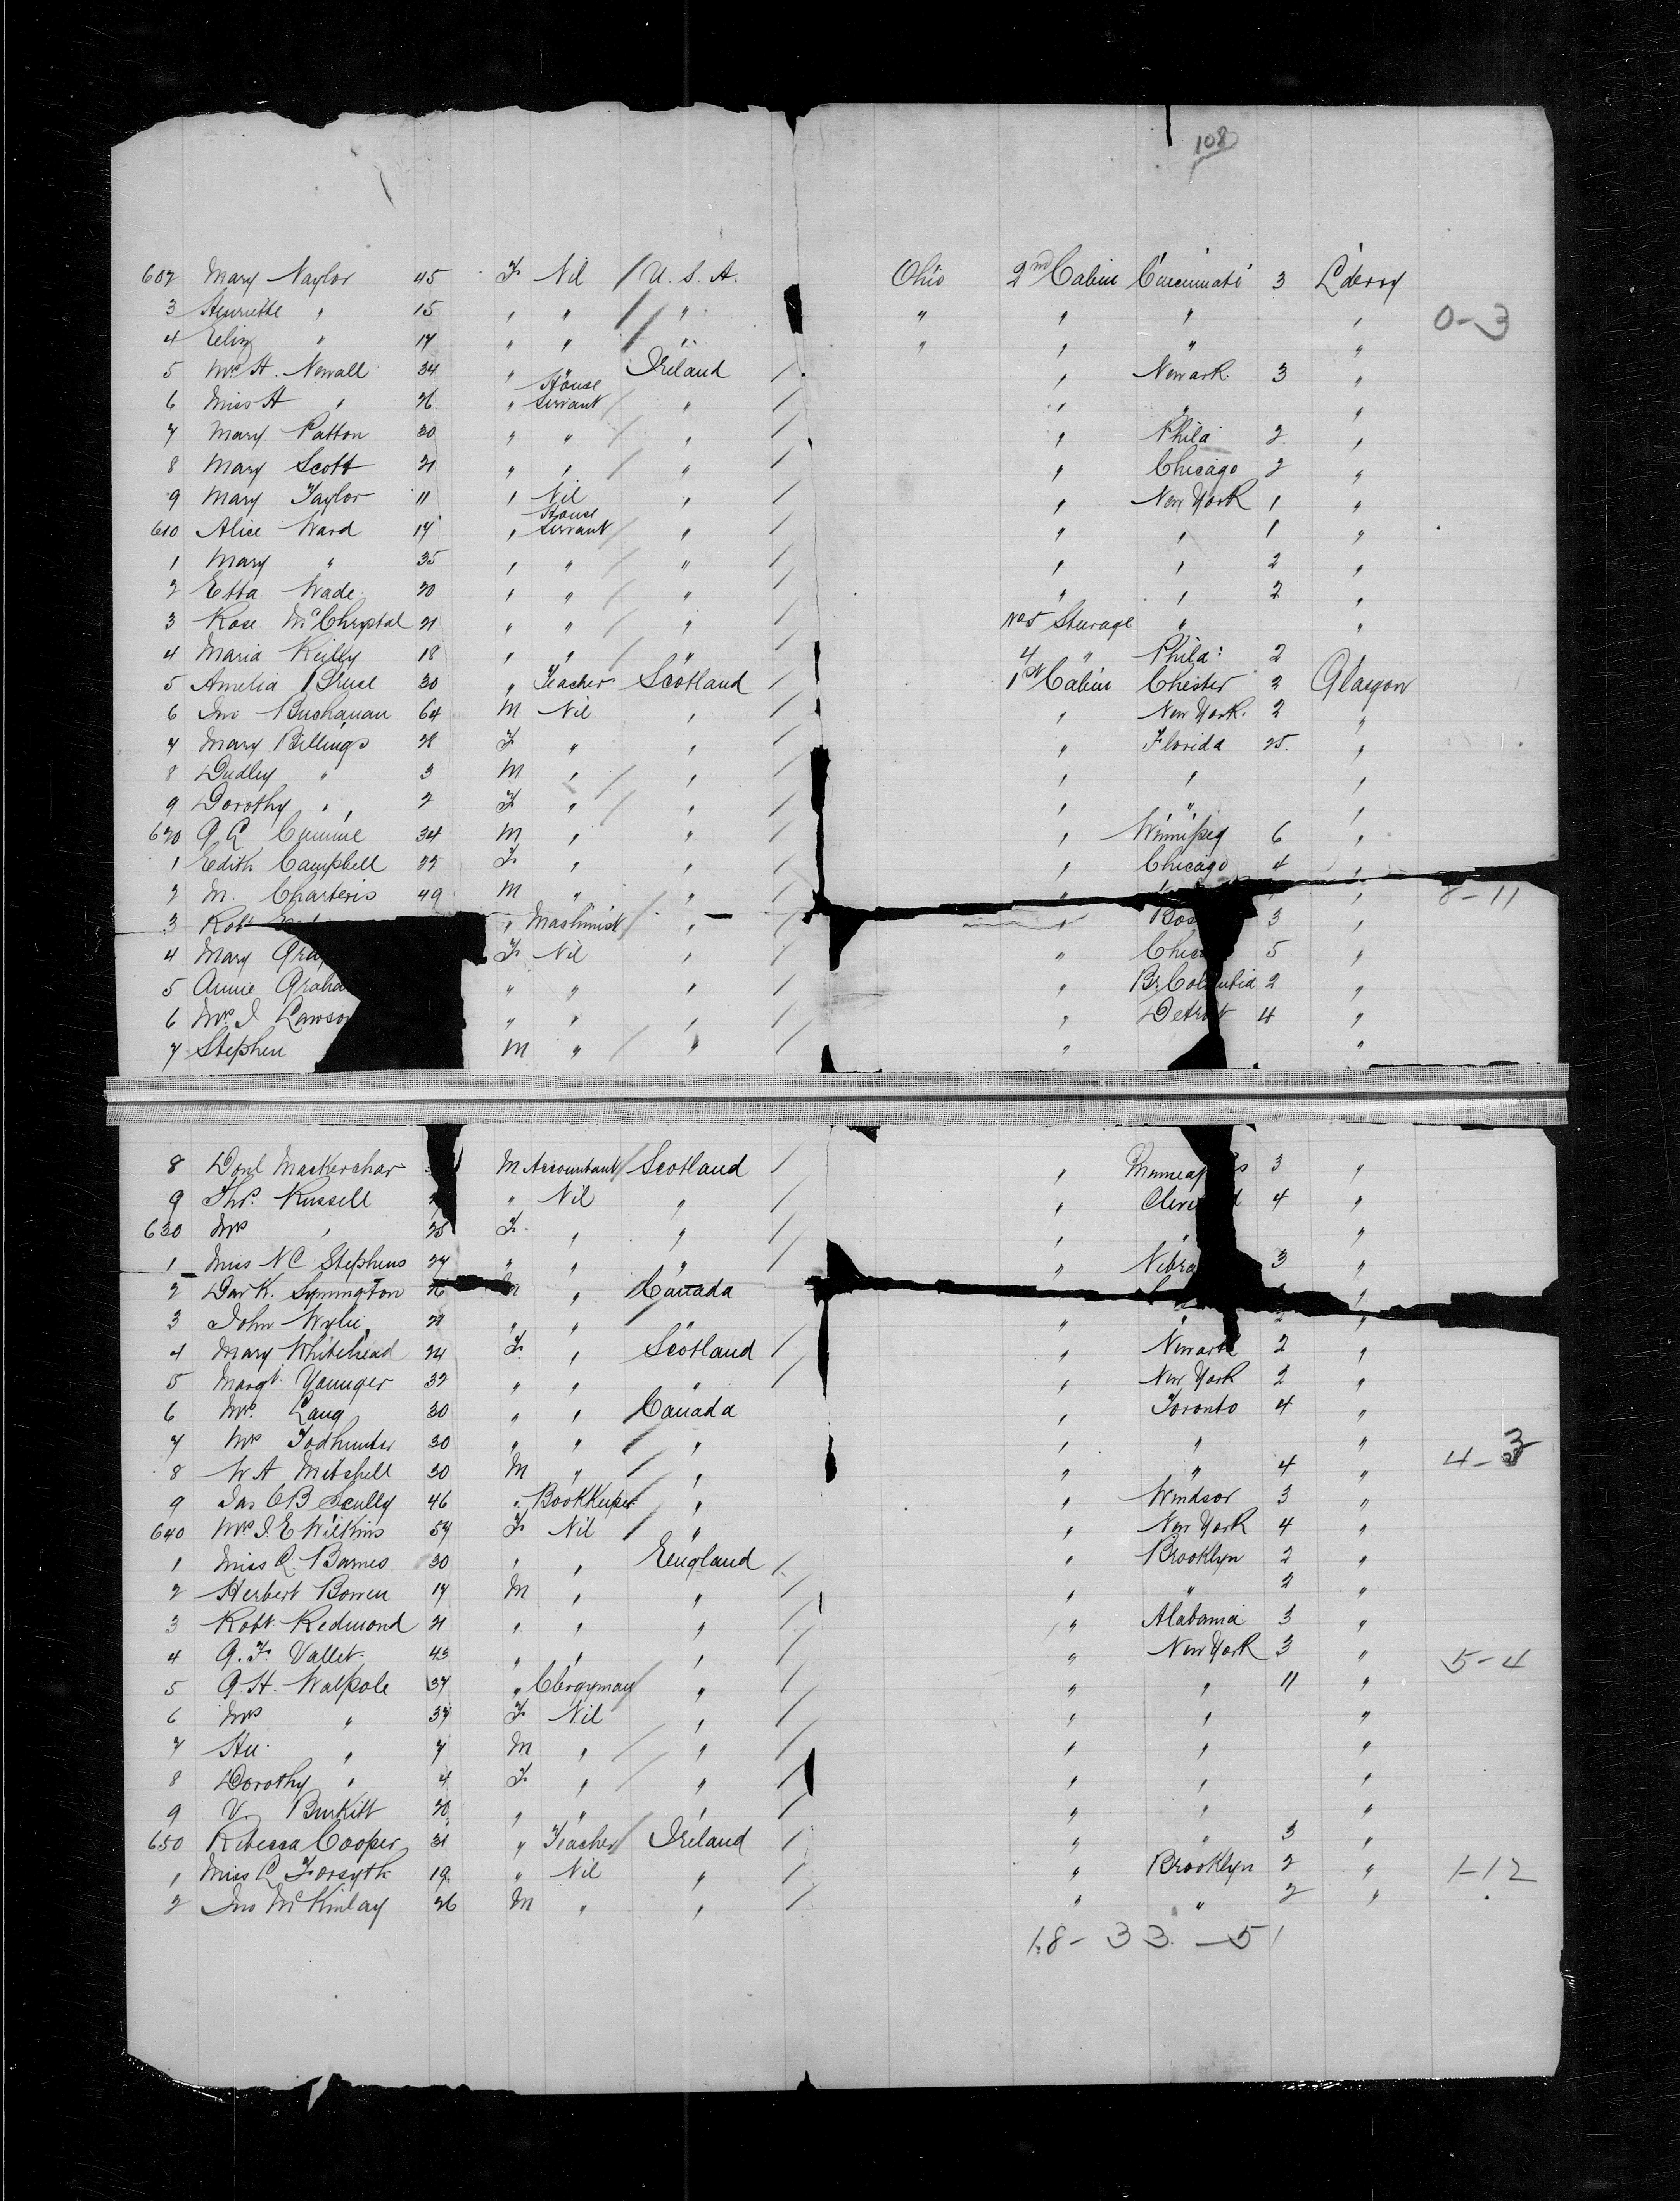 108
602 Mary Naylor 45 F Nil / U.S.A. Ohio 2nd Cabin Cincinnati 3 L'derry
3 Henriette " 15 " " / " " " " "
0-3
4 Eliz " 17 " " / " " " " "
5 Mrs H. Newall 34 " " Ireland / " Newark 3 "
6 Miss H " 26 " House Servant / " / " " "
7 Mary Patton 30 " " / " / " Phila 2 "
8 Mary Scott 21 " " / " / " Chicago 2 "
9 Mary Taylor 11 " Nil " / " New York 1 "
610 Alice Ward 17 " House Servant / " / " " 1 "
1 Mary " 35 " " / " / " " 2 "
2 Etta Wade 20 " " / " / " " 2 "
3 Rose McChrystal 21 " " / " / No 5 Steerage " "
4 Maria Reilly 18 " " / " / 4 " Phila: 2 "
5 Amelia Bruce 30 " Teacher Scotland / 1st Cabin Chester 2 Glasgow
6 Jno Buchanan 64 M Nil " / " New York. 2 "
7 Mary Billings 28 F " " / " Florida 25. "
8 Dudley " 3 M " / " / " " "
9 Dorothy " 2 F " / " / " " "
620 34 M " " / " Winnipeg 6 "
1 Edith Campbell 22 F " " / " Chicago 4 "
2 M. Charteris 49 M " / " / " "
8-11
3 Robt " Machinist / " / " Bos 3 "
4 Mary F Nil " / " Chica 5 "
5 Annie Graha " " " / " Br. Columbia 2 "
6 Mrs J Lawson " " " / " Detroit 4 "
7 Stephen M " / " / " "
8 Donl Mackerchar M Accountant / Scotland / " Minneap s 3 "
9 Thos. Russell " Nil " / " Cleve d 4 "
630 Mrs " 25 F " " / " " "
1 Miss N C Stephens 27 " " " / " Nebra 3 "
2 Symington 26 " Canada "
3 John Wylie 29 " " / " " " 2 "
4 Mary Whitehead 24 F " Scotland / " Newark 2 "
5 Margt. Younger 32 " " " / " New York 2 "
6 Mrs. Lang 30 " " / Canada " Toronto 4 "
7 Mrs Todhunter 30 " " / " " " "
4-3
8 W A Mitchell 30 M " / " " " 4 "
9 Jas O'B Scully 46 " BookKeeper / " " Windsor 3 "
640 Mrs J. E Wilkins 57 F Nil / " " New York 4 "
1 Miss Q. Barnes 30 " " England / " Brooklyn 2 "
2 Herbert Bowen 17 M " " / " " 2 "
3 Robt Redmond 21 " " " / " Alabama 3 "
4 G. F. Vallet 43 " " " / " New York 3 "
5-4
5 G. H. Walpole 37 " Clergyman / " / " " 11 "
6 Mrs " 37 F Nil " / " " "
7 Hu. " 7 M " / " / " " "
8 Dorothy " 4 F " / " / " " "
9 V. Burkitt 20 " " " / " " "
650 Rebecca Cooper 31 " Teacher / Ireland / " " 3 "
1 Miss C Forsyth 19 " Nil " / " Brooklyn 2 "
1-12
2 Jno McKinlay 26 M " " / " " 2 "
18 - 33 - 51